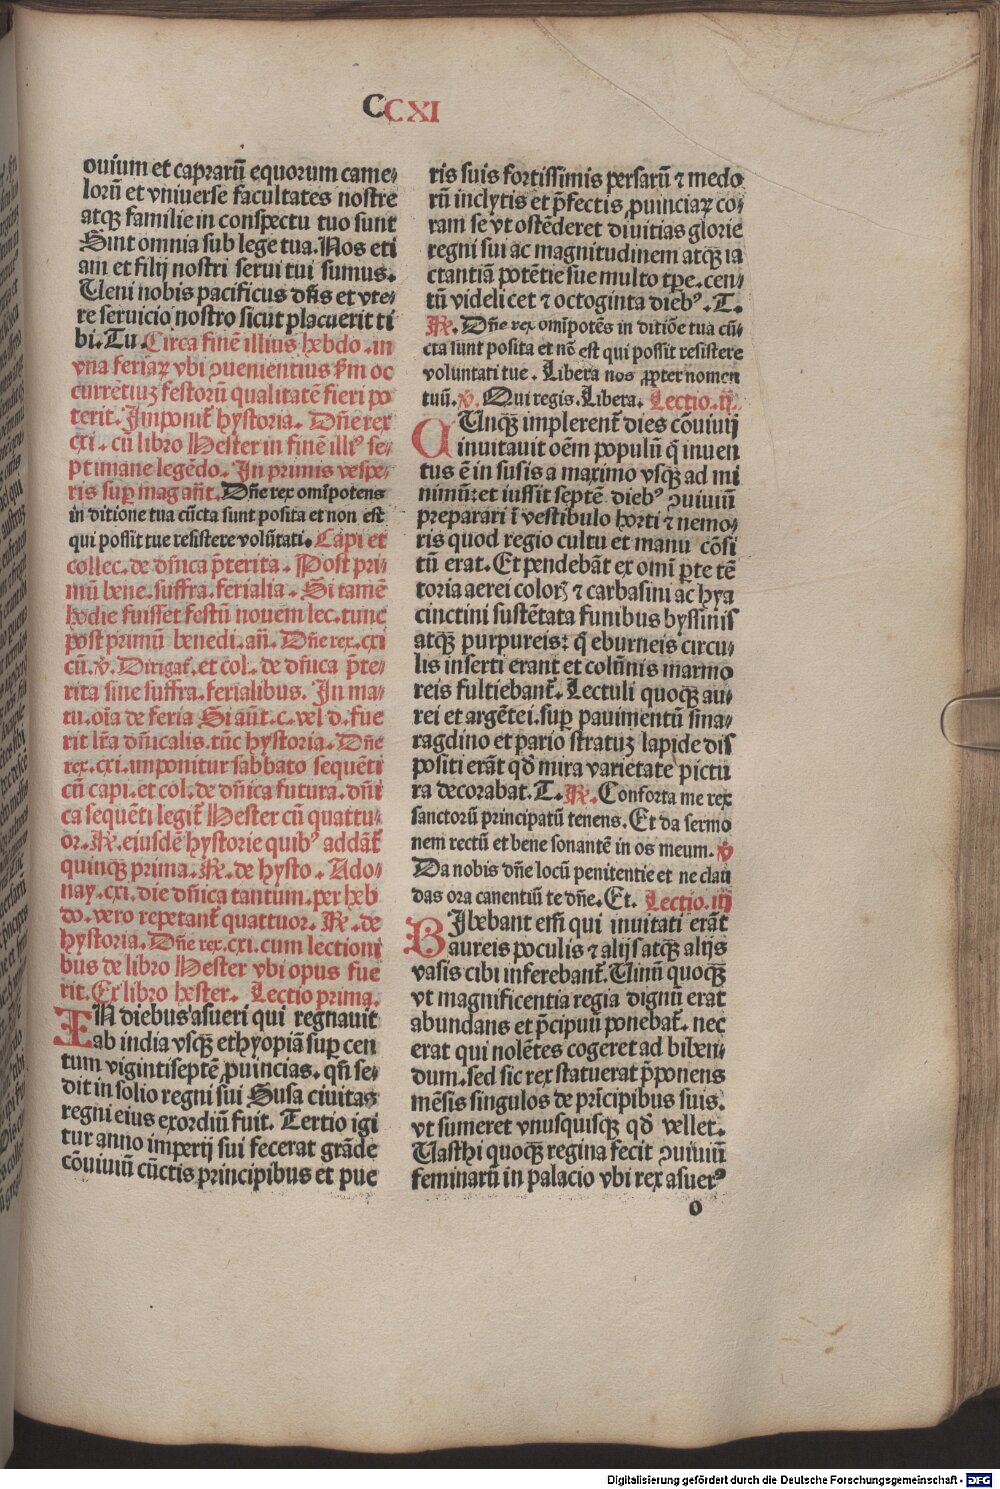 CCXI
ouium et caprarū equorum came⸗
lorū et vniuerse facultates nostre
atqꝫ familie in conspectu tuo sunt
Sint omnia sub lege tua. Nos eti
am et filij nostri serui tui sumus.
Ueni nobis pacificus dn̄s et vte⸗
re seruicio nostro sicut placuerit ti
bi. Tu. Circa finē illius hebdo. in
vna feriaꝝ vbi ꝯuenientius ẜm oc
currētiuꝫ festorū qualitatē fieri po
terit. Imponit᷑ hystoria. Dn̄e rex
cxi. cū libro Hester in finē illiꝰ se⸗
ptimane legēdo. In primis vespe⸗
ris suꝑ mag̃ añt. Dn̄e rex om̄ipotens
in ditione tua cūcta sunt posita et non est
qui possit tue resistere volūtati. Capi et
collec. de dn̄ica p̄terita. Post pri⸗
mū bene. suffra. ferialia. Si tamē
hodie fuisset festū nouem lec. tunc
post primū benedi. añ. Dn̄e rex. cxi
cū. ꝟ. Dirigat᷑. et col. de dn̄ica p̄te⸗
rita sine suffra. ferialibus. In ma⸗
tu. oīa de feria Si aūt. c. vel d. fue
rit lr̄a dn̄icalis. tūc hystoria. Dn̄e
rex. cxi. imponitur sabbato sequēti
cū capi. et col. de dn̄ica futura. dn̄i
ca sequēti legit᷑ Hester cū quattu⸗
or. ℟. eiusdē hystorie quibꝰ addāt᷑
quinqꝫ prima. ℟. de hysto. Ado⸗
nay. cxi. die dn̄ica tantum. per heb
do. vero repetant᷑ quattuor. ℟. de
hystoria. Dn̄e rex. cxi. cum lectioni
bus de libro Hester vbi opus fue
rit. Ex libro hester. Lectio prima.
IN diebus asueri qui regnauit
ab india vsqꝫ ethyopiā suꝑ cen
tum vigintiseptē ꝓuincias. qn̄ se⸗
dit in solio regni sui Susa ciuitas
regni eius exordiū fuit. Tertio igi
tur anno imperij sui fecerat grāde
cōuiuiū cūctis principibus et pue
ris suis fortissimis persarū ⁊ medo
rū inclytis et p̄fectis ꝓuinciaꝝ co⸗
ram se vt ostēderet diuitias glorie
regni sui ac magnitudinem atqꝫ ia
ctantiā potētie sue multo tꝑe. cen⸗
tū videlicet ⁊ octoginta diebꝰ. T.
℟. Dn̄e rex om̄ipotēs in ditiōe tua cū⸗
cta sunt posita et nō est qui possit resistere
voluntati tue. Libera nos ꝓpter nomen
tuū. ꝟ. Qui regis. Libera. Lectio. ij.
CUnqꝫ implerent᷑ dies cōuiuij
inuitauit oēm populū q̄ inuen
tus ē in susis a maximo vsqꝫ ad mi
nimū: et iussit septē diebꝰ ꝯuiuiū
preparari ī vestibulo horti ⁊ nemo⸗
ris quod regio cultu et manu cōsi
tū erat. Et pendebāt ex om̄i ꝑte tē
toria aerei colorꝭ ⁊ carbasini ac hya
cinctini sustētata funibus byssinis
atqꝫ purpureis: q̄ eburneis circu⸗
lis inserti erant et colūnis marmo
reis fultiebant᷑. Lectuli quoqꝫ au⸗
rei et argētei. suꝑ pauimentū sma⸗
ragdino et pario stratuꝫ lapide dis
positi erāt qd̄ mira varietate pictu
ra decorabat. T. ℟. Conforta me rex
sanctorū principatū tenens. Et da sermo
nem rectū et bene sonantē in os meum. ꝟ
Da nobis dn̄e locū penitentie et ne clau
das ora canentiū te dn̄e. Et. Lectio. iij
BIbebant em̄ qui inuitati erāt
aureis poculis ⁊ alijs atqꝫ alijs
vasis cibi inferebant᷑. Uinū quoqꝫ
vt magnificentia regia dignū erat
abundans et p̄cipuū ponebat᷑. nec
erat qui nolētes cogeret ad biben⸗
dum. sed sic rex statuerat p̄ponens
mēsis singulos de prīcipibus suis.
vt sumeret vnusquisqꝫ qd̄ vellet.
Uasthi quoqꝫ regina fecit ꝯuiuiū
feminarū in palacio vbi rex asuerꝰ
o
Digitalisierung gefördert durch die Deutsche Forschungsgemeinschaft - DFG